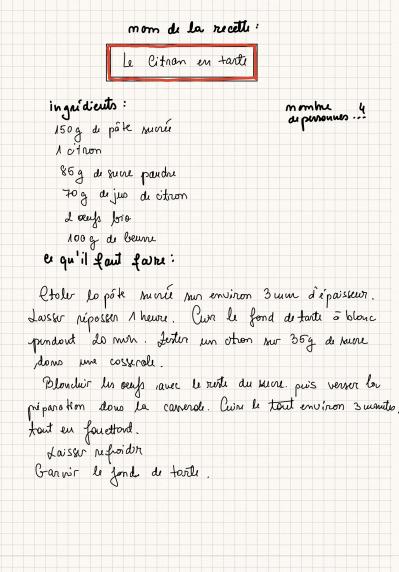 nom de la recette :
Le Citron en tarte
ingrédients :
nombre
de personnes ... 4
150g de pâte sucrée
1 citron
85g de sucre poudre
70g de jus de citron
2 œufs bio
100g de beurre
ce qu'il faut faire :
Etaler la pâte sucrée sur environ 3mm d'épaisseur.
Laisser reposser 1 heure. Cuire le fond de tarte à blanc
pendant 20 min. Zester un citron sur 35g de sucre
dans une casserole.
Blanchir les œufs avec le reste du sucre. puis verser la
préparation dans la casserole. Cuire le tout environ 3 minutes,
tout en fouettant.
Laisser refroidir
Garnir le fond de tarte.